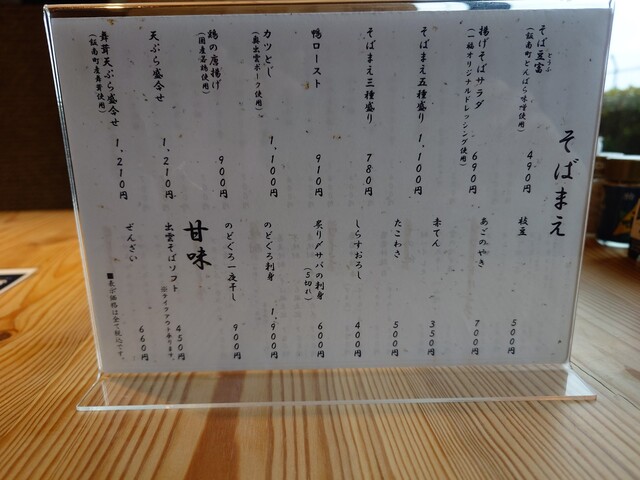 そばまえ
そば豆富 490円
とうふ
(飯南町とんばら味噌使用)
揚げそばサラダ 690円
(一福オリジナルドレッシング使用)
そばまえ五種盛り 1,100円
そばまえ三種盛り 780円
鴨ロースト 910円
カツとじ 1,100円
(奥出雲ポーク使用)
鶏の唐揚げ 900円
(国産若鶏使用)
天ぷら盛合せ 1,210円
舞茸天ぷら盛合せ 1,210円
(飯南町産舞茸使用)
枝豆 500円
あごのやき 700円
赤てん 350円
たこわさ 500円
しらすおろし 400円
炙り〆サバの刺身 600円
(5切れ)
のどぐろ刺身 1,900円
のどぐろ一夜干し 900円
甘味
出雲そばソフト 450円
※テイクアウト承ります。
ぜんざい 660円
■表示価格は全て税込です。